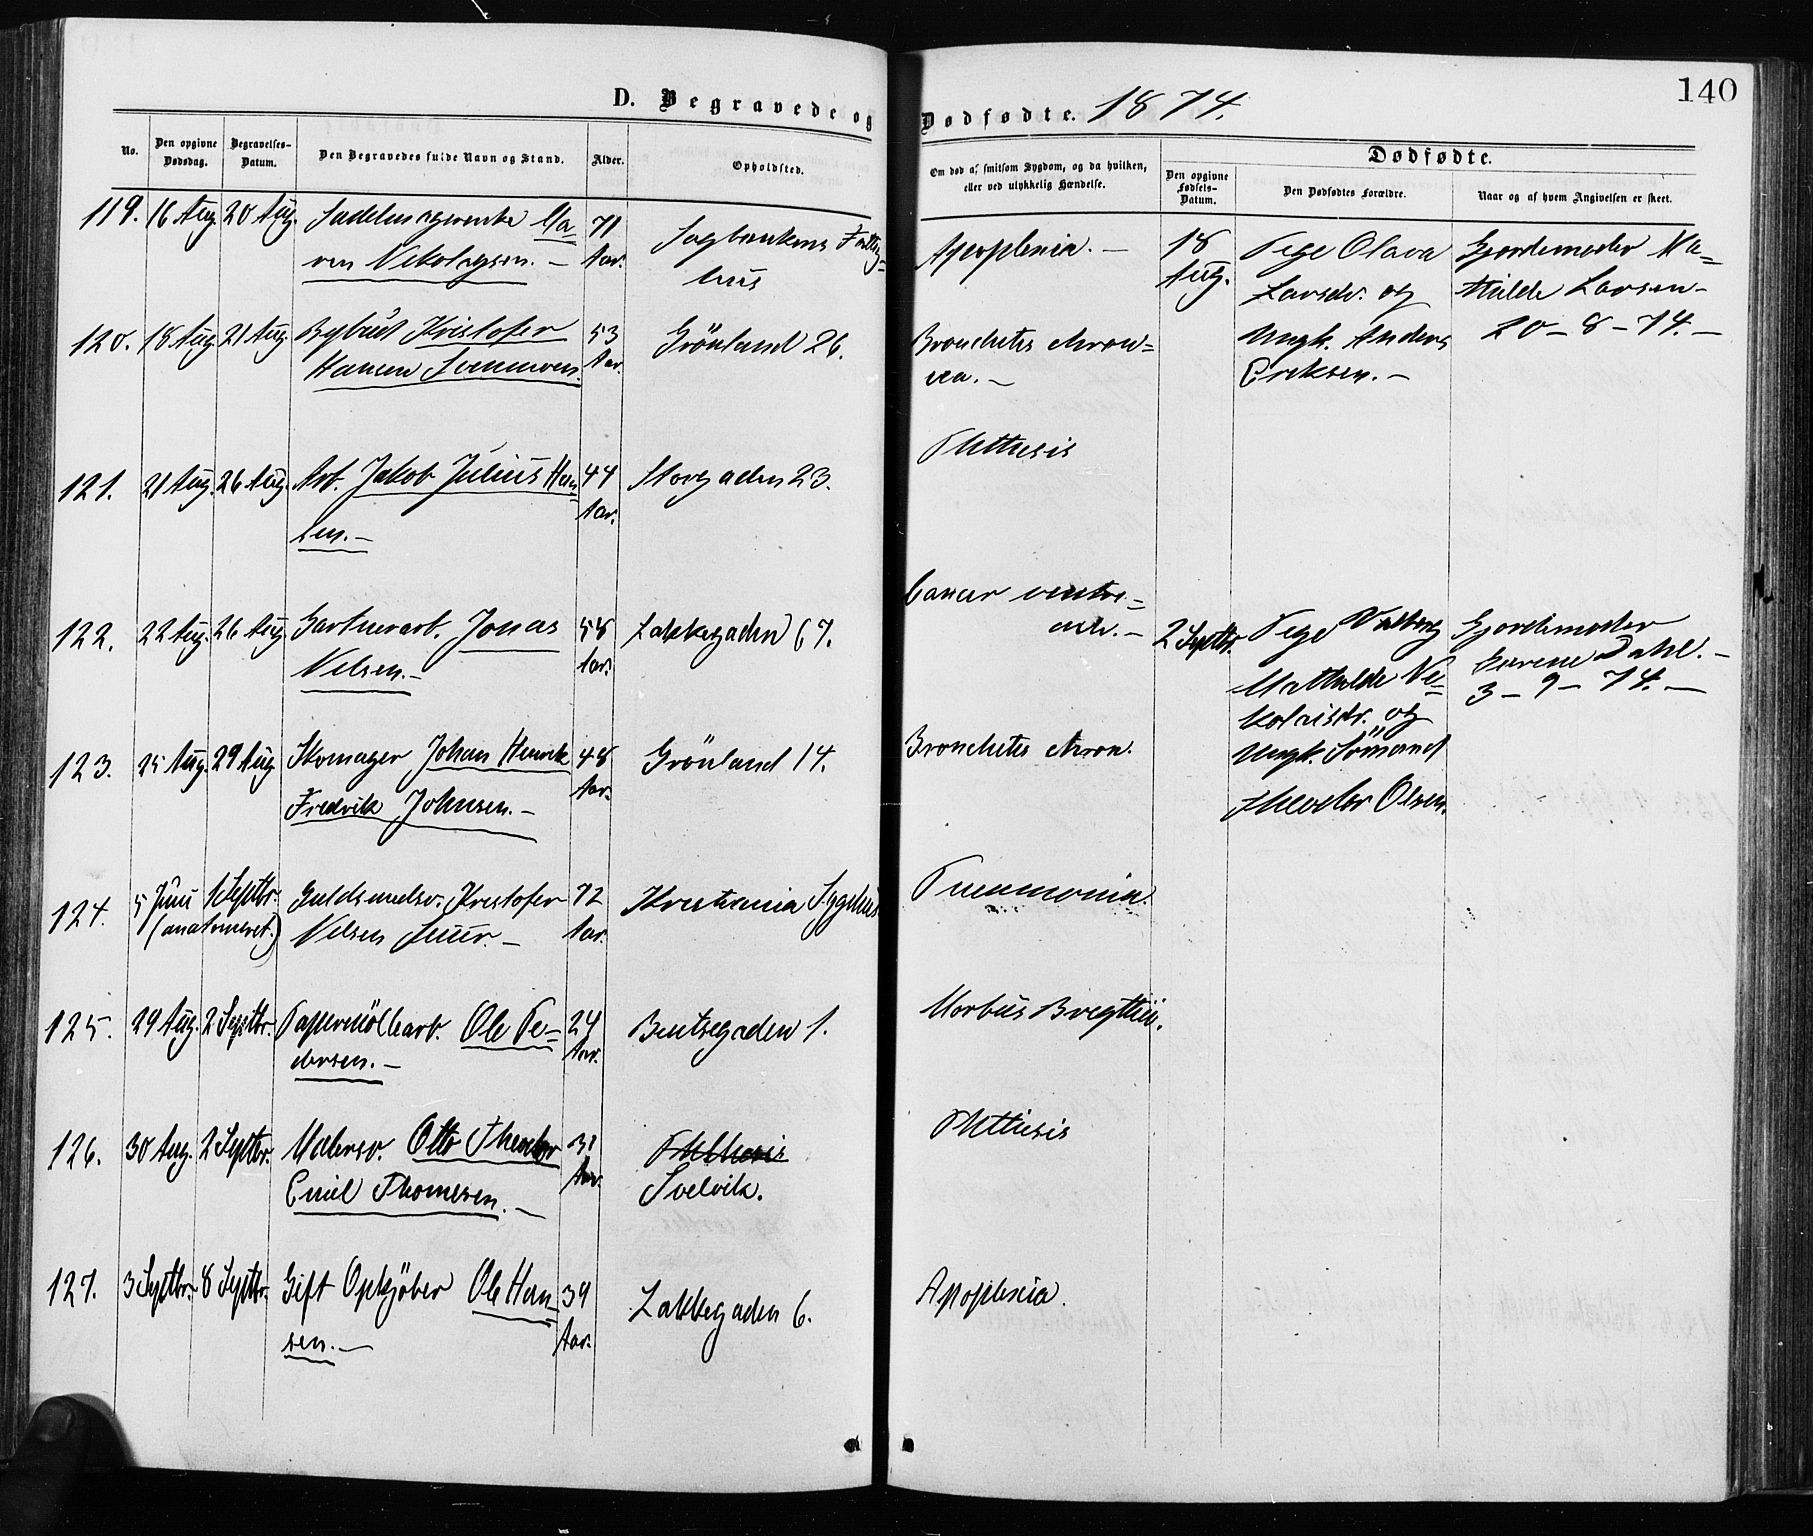 140
D. Begravede og Dødfødte. 1874.
No.
Den opgivne Dødsdag.
Begravelses-Datum.
Den Begravedes fulde Navn og Stand.
Alder.
Opholdsted.
Om død af smitsom Sygdom, og da hvilken, eller ved ulykkelig Hændelse.
Dødfødte.
Den opgivne Fødsels-Datum.
Den Dødfødtes Forældre.
Naar og af hvem Angivelsen er skeet.
119. 16 Aug. 20 Aug. Ma- 71
ren Nikolaysen. – Aar.
hus
Apoplexia. –
120. 18 Aug 21 Aug. Kristofer 53 Grönland 26.
Hansen Aar.
Bronchitis chron-
ica. –
121. 21 Aug. 26 Aug. Arb. Jakob Julius Han- 44 Storgaden 23.
sen. – Aar.
Phthisis
122. 22 Aug. 26 Aug. Gartnerarb. Jonas 58 Lakkegaden 67.
Nilsen. – Aar.
Cancer ventri-
culi. –
123. 25 Aug. 29 Aug. Skomager Johan Henrik 48 Grönland 14.
Fredrik Johnsen. – Aar.
Bronchitis chron.
124. 5 Juni 1 Septbr. Guldsmedsv. Kristofer 72 Kristiania Sygehus
(anatomeret.) Nilsen – Aar.
Pneumonia.
125. 29 Aug. 2 Septbr. Papirmöllearb. Ole Pe- 24 Bentsegaden 1.
dersen. – Aar.
Morbus Brigthii.
126. 30 Aug. 2 Septbr. Malersv. Otto Theodor 31 Phthisis
Emil Thomesen. – Aar. Svelvik.
Phthisis
127. 3 Septbr. 8 Septbr. Gift Opkjöber Ole Han- 39 Lakkegaden 6.
sen. – Aar.
Apoplexia.
18 Pige Olava Gjordemoder Ma-
Aug. Larsdr. og thilde Larsen –
Ungk. Anders 20 – 8 – 74. –
Eriksen. –
2 Septbr. Pige Valborg Gjordemoder
Mathilde Ni- Dahl. –
kolaisdr. og 3 – 9 – 74. –
Ungk. Sömand
Theodor Olsen.